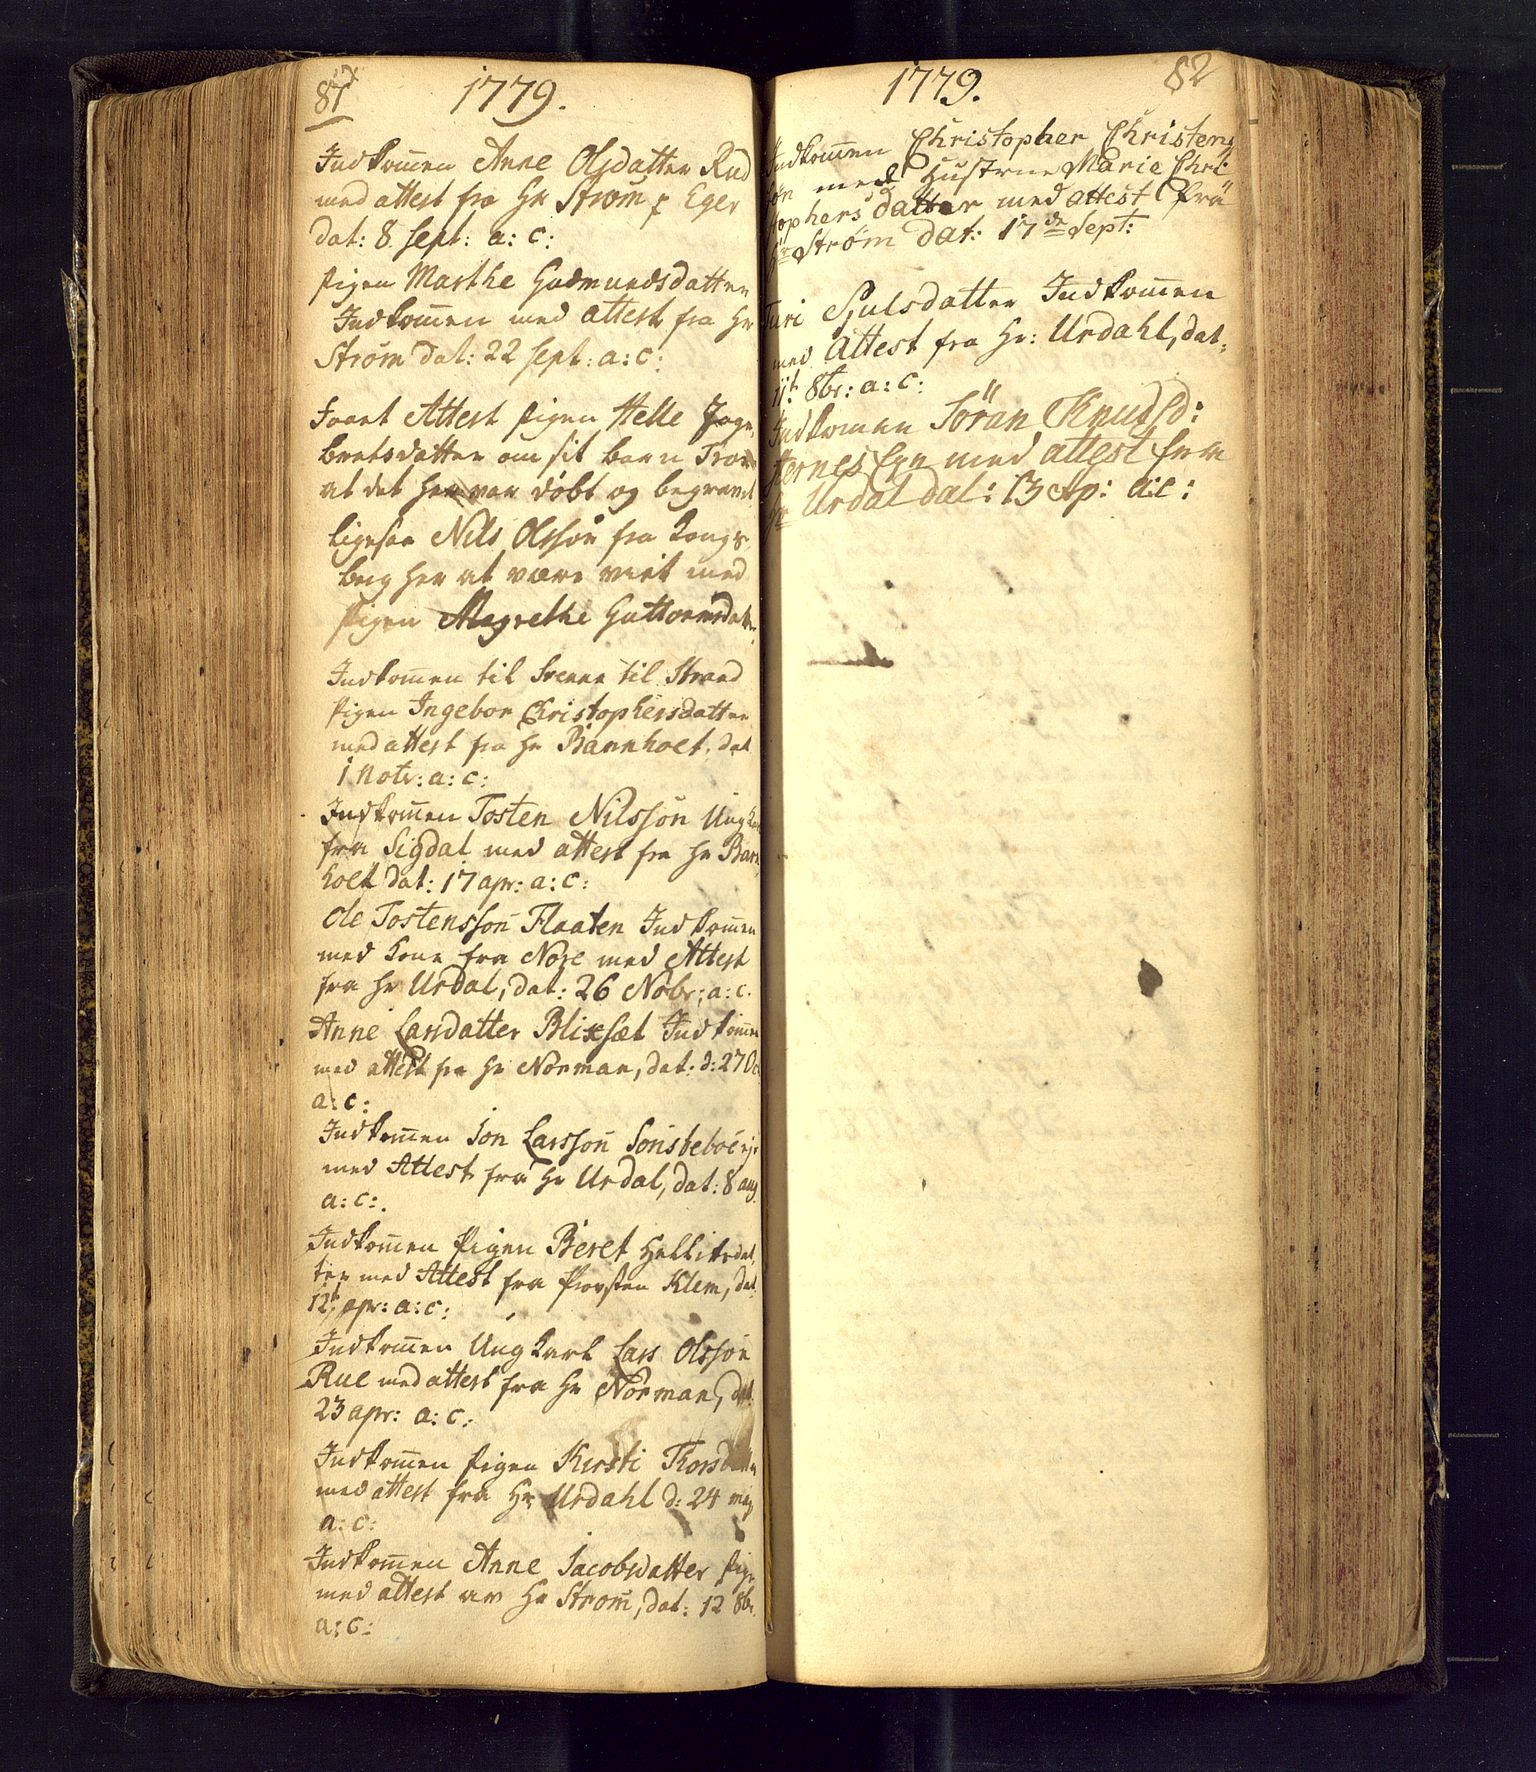 81
1779.
Indkom̄en Anne Olsdatter Rud
med attest fra Hr Strøm p Eger
dat: 8 sept: a: c:
Pigen Marthe Gudmundsdatter
Indkom̄en med attest fra Hr
Strøm dat: 22 sept: a: c:
Attest Pigen Helle
bretsdatter om sit barn
at det her var døbt og begravet
ligesaa Nils Olssøn fra Kongs
berg her at være viet med
Pigen Magrethe Guttormsdatter
Indkom̄en til Svenne til Strand
Pigen Ingebor Christophersdatter
med attest fra Hr Barnholt, dat
1 Novr: a: c:
Indkom̄en Tosten Nilssøn Ungkarl
fra Sigdal med attest fra Hr Barn
holt dat: 17 apr: a: c:
Ole Tostenssøn Flaaten Indkom̄en
med Kone fra Nore med Attest
fra Hr Urdal, dat: 26 Nobr; a: c.
Anne Larsdatter Blixsæt Indkom̄en
med attest fra Hr Norman, dat: d: 27 Oc
a: c:
Indkom̄en Jon Larssøn
med Attest fra Hr Urdal, dat: 8 aug
a: c:.
Indkom̄en Pigen Beret Hellitsdat
ter med Attest fra Provsten Klem, dat
12t apr: a: c:
Indkom̄en Ungkarl Lars Olssøn
Rue med attest fra Hr Norman, dat
23 apr: a: c:
Indkom̄en Pigen Kirsti Thorsdatter
med attest fra Hr Urdahl d: 24 maj
a: c:
Indkom̄en Anne Jacobsdatter Pige
med attest av Hr Strøm, dat: 12 8br
a: c:
1779.
82
Indkom̄en Christopher Christens
søn med Hustrue Marie Chri
stophers datter med attest frå
Hr Strøm dat: 17de Sept:
Turi Sjulsdatter Indkom̄en
med Attest fra Hr: Urdahl, dat,
11t 8br: a: c:
Indkomen Søran Knudsd:
med attest fra
Hr Urdal dat: 13 Ap: a:c: